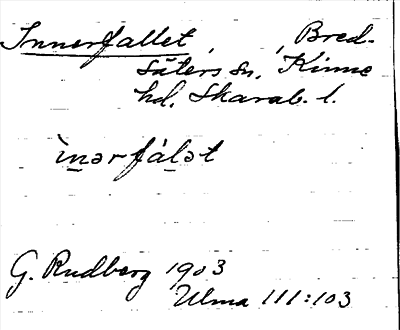 Innerfallet, , Bred-
säters sn, Kinne
hd, Skarab. l.
ìnərfálət
G. Rudberg 1903
Ulma 111:103